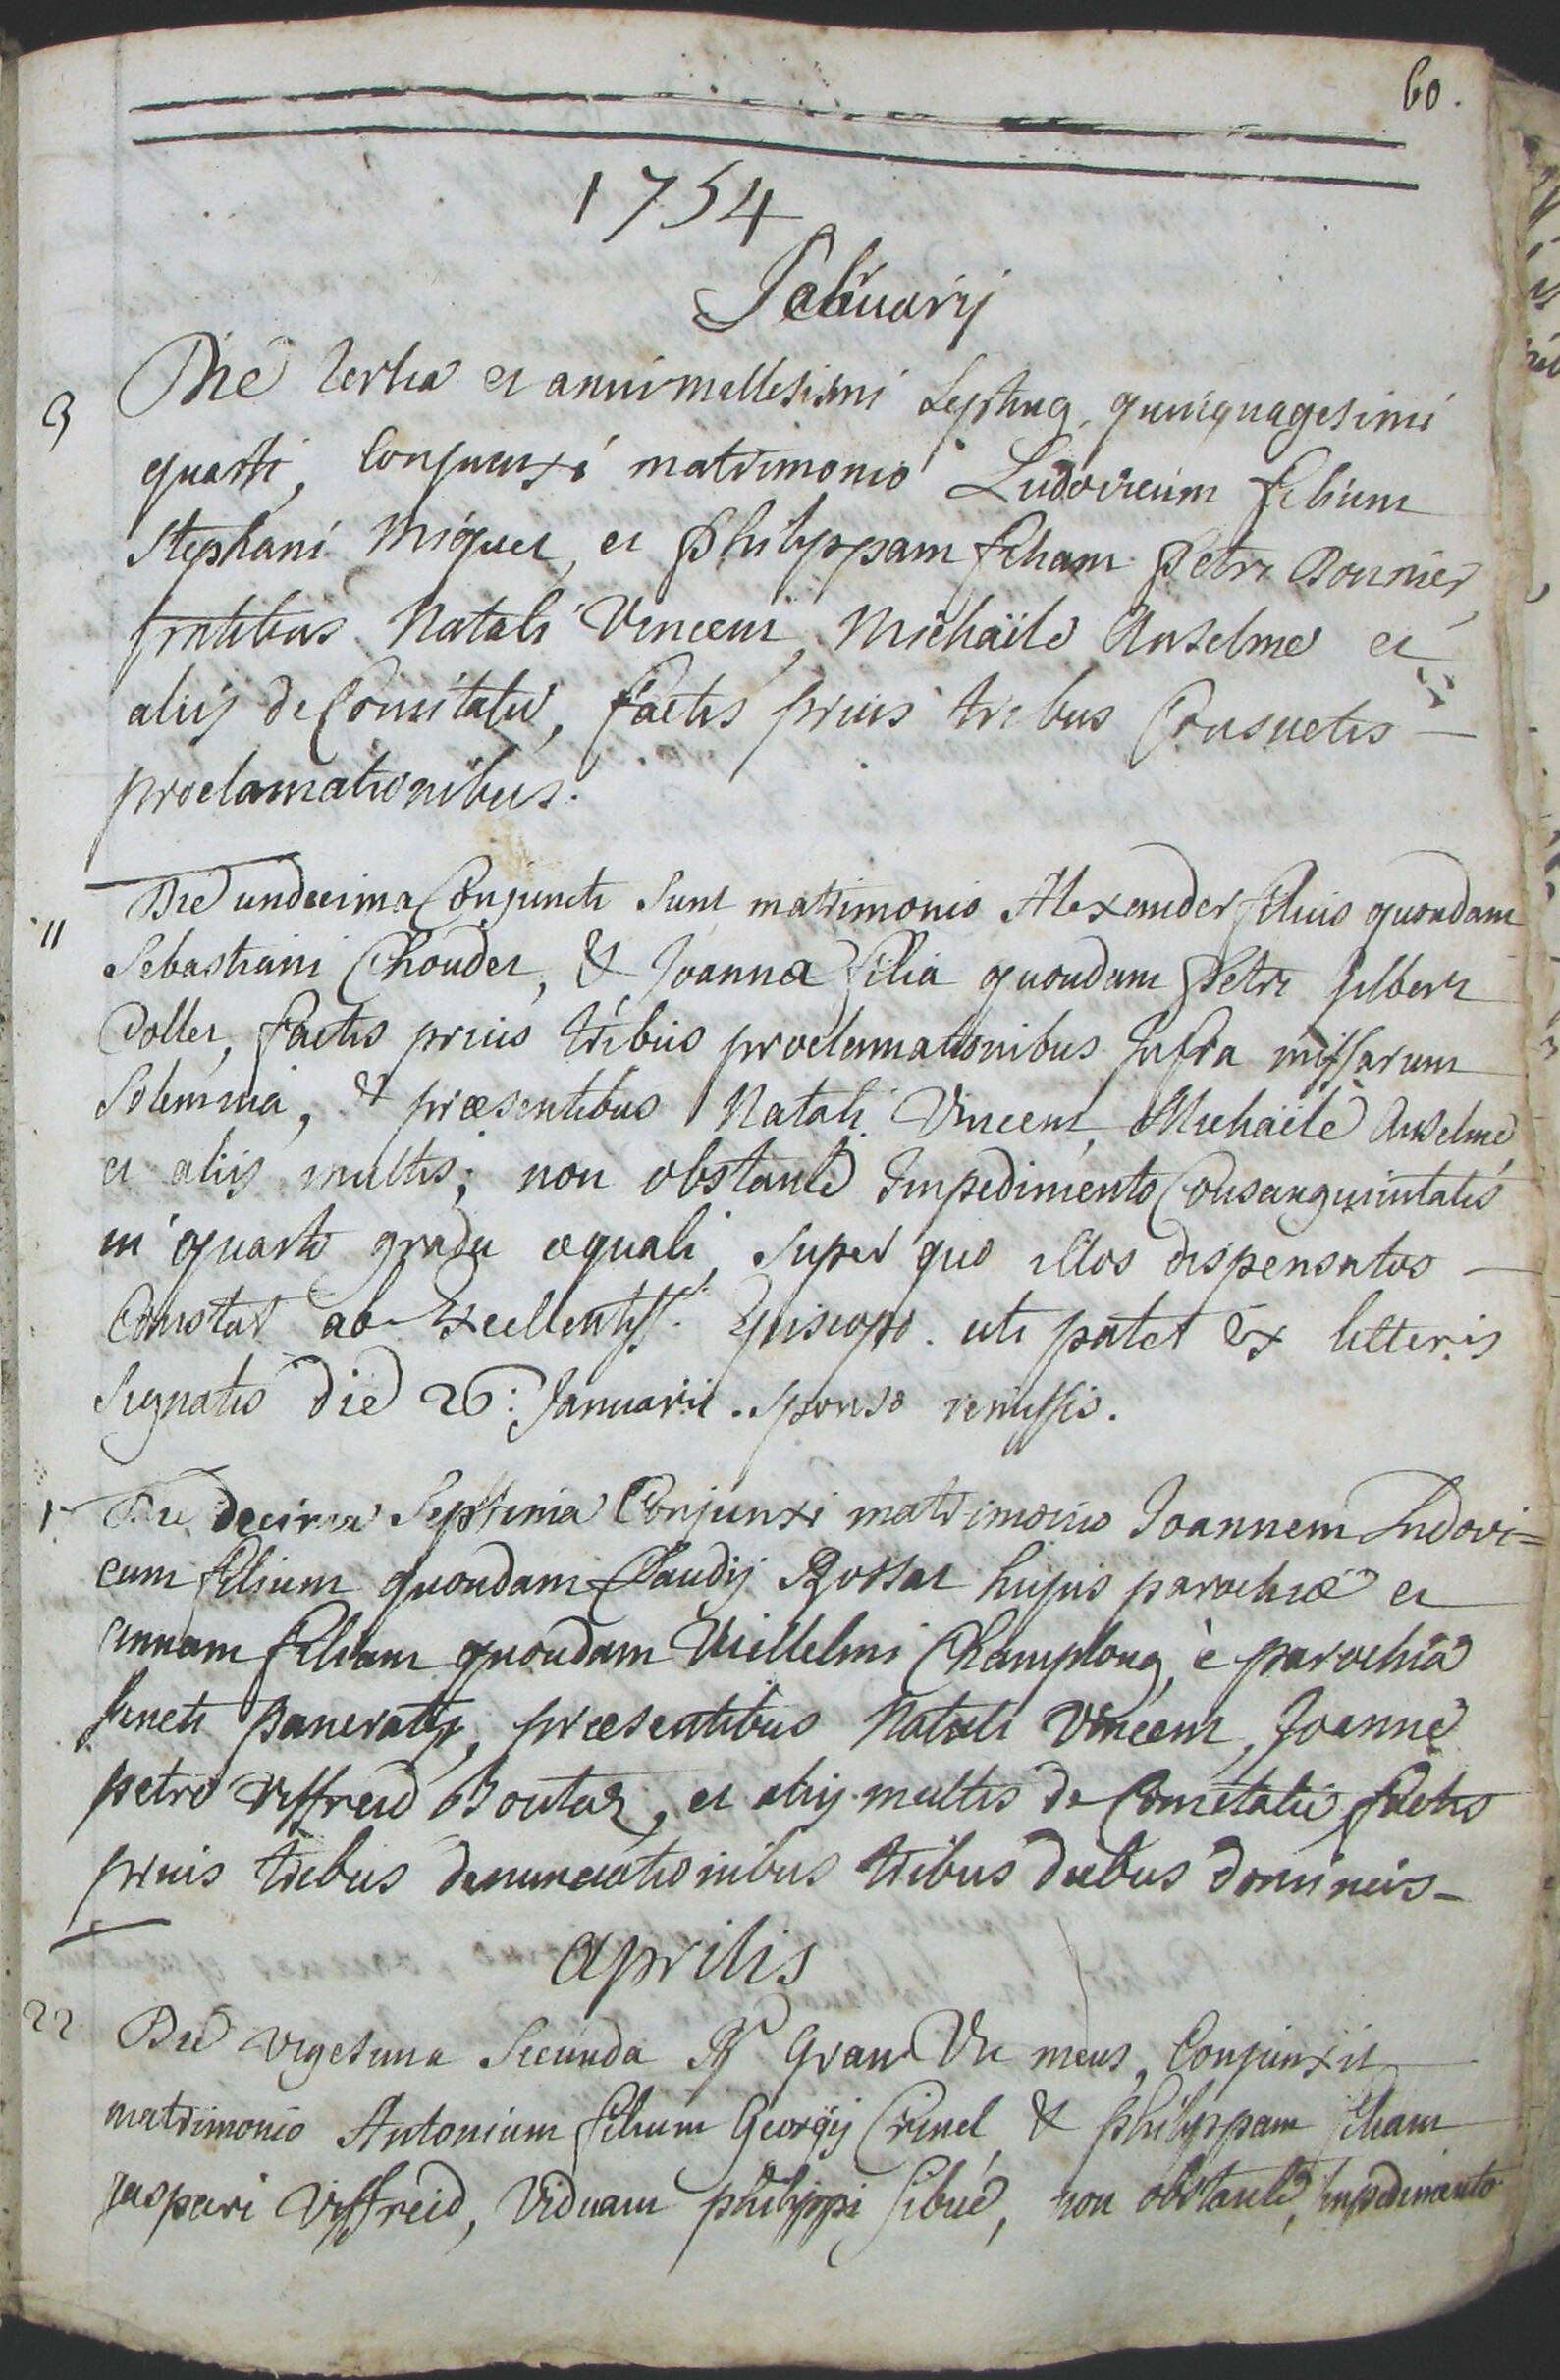 60.
1754
Februarij
3 Die tertia et anni millesimi septing. quinquagesimi
quarti, conjunxi matrimonio Ludovicum filium
Stephani Miguet, et Philippam filiam Petri Bonnier
Natali Vincent, Michaële Anselme et
aliis de Comitatu, factis prius tribus Consuetis
proclamationibus.
11 Die undecima Conjuncti sunt matrimonio Alexander filius quondam
Sebastiani Choudet, & Joanna filia quondam Petri Jilbert
Collet, factis prius tribus proclamationibus Infra missarum
Solemnia, & præsentibus Natali Vincent, Michaële Anselme,
et aliis multis; non obstante Impedimento Consanguinitatis
in quarto gradu æquali, super quo illos dispensatos
Constat ab Excellentiss. Episcopo. uti patet Ex litteris
signatis die 26: Januarii. sponso remissis.
Die decima septima Conjunxi matrimonio Joannem Ludovi=
cum filium quondam Claudij Rossat hujus parochiæ et
annam filiam quondam Villelmi Champlong, è parochiâ
sancti pancratij, præsentibus Natali Vincent, Joanne
petro Viffreid Boutaz, et aliis multis de Comitatu, factis
prius tribus denunciationibus tribus diebus dominicis
Aprilis
22 Die vigesima secunda Rd Gran Vic meus, Conjunxit
matrimonio Antonium filium Georgij Crinel, & philippam filiam
jaspari Viffreid, Viduam philippi Sibué, non obstante, Impedimento